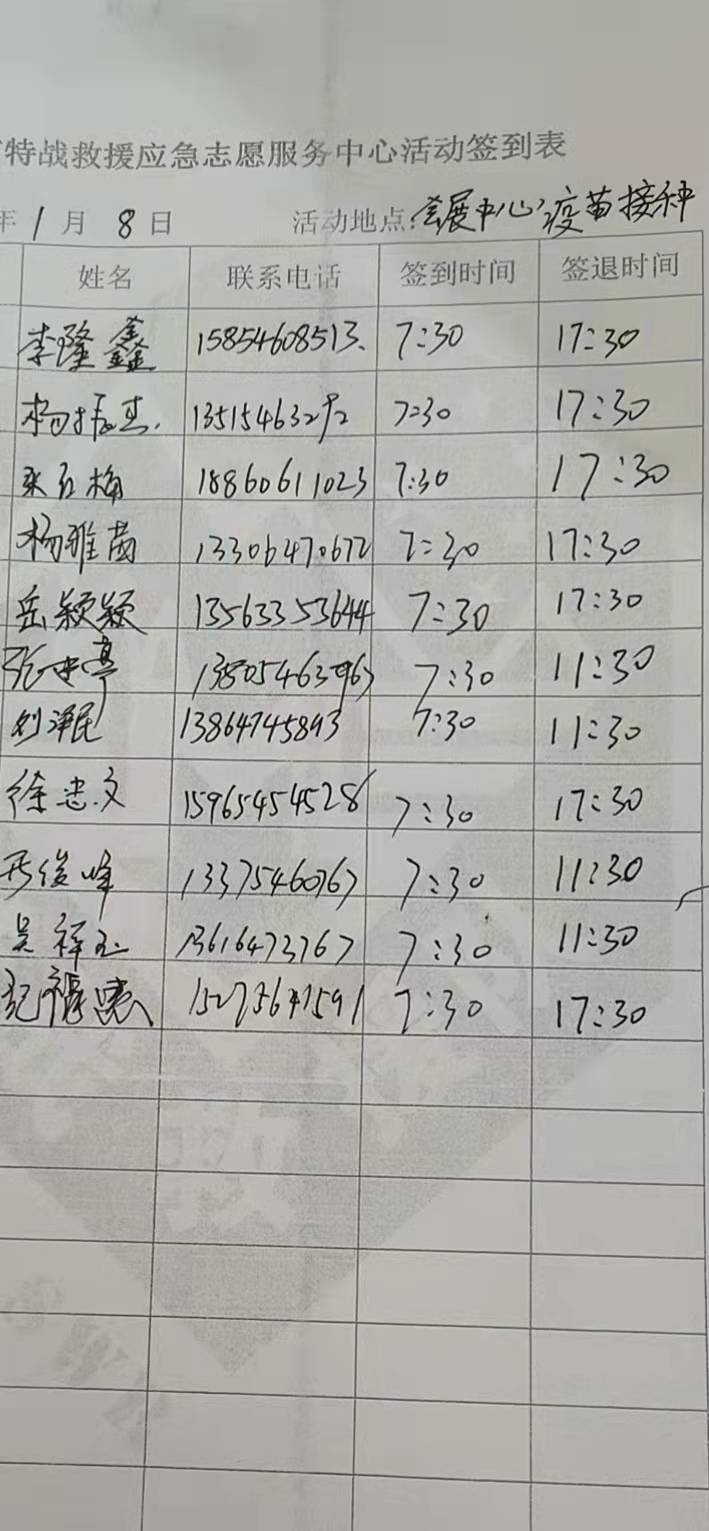 特战救援应急志愿服务中心活动签到表
年1月8日 活动地点:会展中心疫苗接种
姓名 联系电话 签到时间 签退时间
李隆鑫 15854608513. 7:30 17:30
杨振杰. 7:30 17:30
张红梅 18860611023 7:30 17:30
杨雅茵 13306470672 7:30 17:30
岳颖颖 13563353644 7:30 17:30
7:30 11:30
刘泽民 13864745893 7:30 11:30
徐忠文 15965454528 7:30 17:30
俊峰 13375460767 7:30 11:30
吴祥玉 13616473767 7:30 11:30
纪福 7:30 17:30